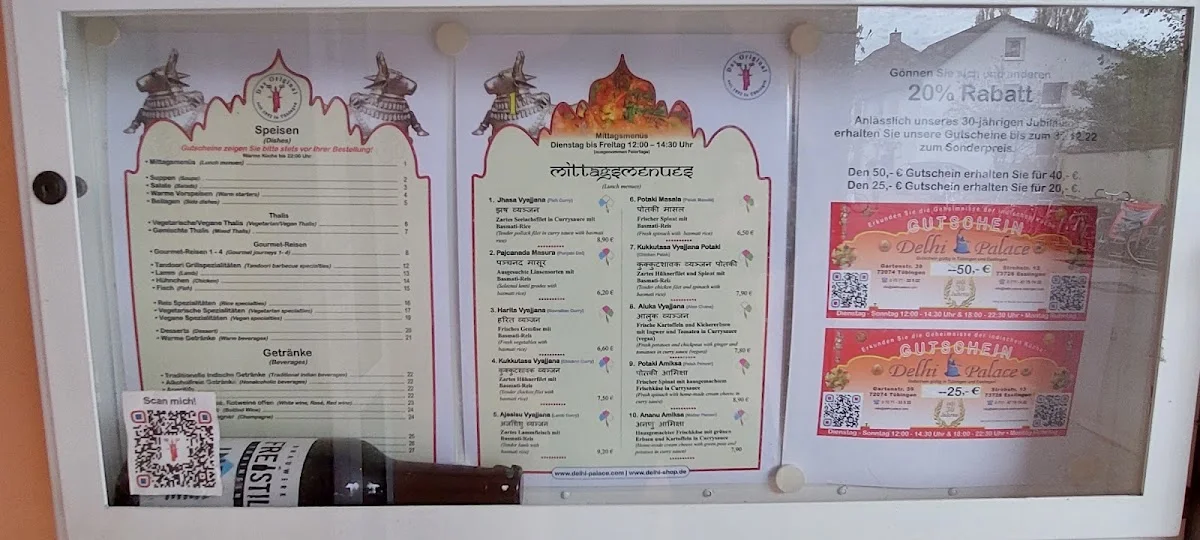 Das Original
seit 1992 in Tübingen
Speisen
(Dishes)
Gutscheine zeigen Sie bitte stets vor Ihrer Bestellung!
Warme Küche bis 22:00 Uhr
• Mittagsmenüs (Lunch menues) 1
• Suppen (Soups) 2
• Salate (Salads) 3
• Warme Vorspeisen (Warm starters) 4
• Beilagen (Side dishes) 5
Thalis
• Vegetarische/Vegane Thalis (Vegetarian/Vegan Thalis) 6
• Gemischte Thalis (Mixed Thalis) 7
Gourmet-Reisen
• Gourmet-Reisen 1 - 4 (Gourmet journeys 1- 4) 8
• Tandoori Grillspezialitäten (Tandoori barbecue specialties) 12
• Lamm (Lamb) 13
• Hühnchen (Chicken) 14
• Fisch (Fish) 15
• Reis Spezialitäten (Rice specialties) 16
• Vegetarische Spezialitäten (Vegetarian specialties) 17
• Vegane Spezialitäten (Vegan specialties) 19
• Desserts (Dessert) 20
• Warme Getränke (Warm beverages) 21
Getränke
(Beverages)
• Traditionelle indische Getränke (Traditional indian beverages) 22
• Alkoholfreie Getränke (Nonalcoholic beverages) 22
Rotweine offen (White wine, Rosé, Red wine) 23
(Bottled Wine) 24
(Champagne) 24
25
26
27
Scan mich!
FREISTIL
Das Original
seit 1992 in Tübingen
Mittagsmenüs
Dienstag bis Freitag 12:00 – 14:30 Uhr
(ausgenommen Feiertage)
Mittagmenues
(Lunch menues)
1. Jhasa Vyajjana (Fish Curry)
झष व्यञ्जन
Zartes Seelachsfilet in Currysauce mit
Basmati-Rice
(Tender pollack filet in curry sauce with basmati
rice) 8,90 €
2. Pajcanada Masura (Punjabi Dal)
पञ्चनद मासूर
Ausgesuchte Linsensorten mit
Basmati-Reis
(Selected lentil grades with
basmati rice) 6,20 €
3. Harita Vyajjana
हरित व्यञ्जन
Frisches Gemüse mit
Basmati-Reis
(Fresh vegetables with
basmati rice) 6,60 €
4. Kukkutasa Vyajjana (Chicken Curry)
Zartes Hühnerfilet mit
Basmati-Reis
(Tender chicken filet with
basmati rice) 7,50 €
5. Ajasisu Vyajjana (Lamb Curry)
Zartes Lammfleisch mit
Basmati-Reis
(Tender lamb with
basmati rice) 8,20 €
6. Potaki Masala (Palak Masala)
पोतकी मासल
Frischer Spinat mit
Basmati-Reis
(Fresh spinach with basmati rice) 6,50 €
7. Kukkutasa Vyajjana Potaki
(Chicken Palak)
कुक्कुटशावक व्यञ्जन पोतकी
Zartes Hühnerfilet und Spinat mit
Basmati-Reis
(Tender chicken filet and spinach with
basmati rice) 7,90 €
8. Aluka Vyajjana (Aloo Chana)
आलुक व्यञ्जन
Frische Kartoffeln und Kichererbsen
mit Ingwer und Tomaten in Currysauce
(vegan)
(Fresh potatoes and chickpeas with ginger and
tomatoes in curry sauce (vegan)) 7,80 €
9. Potaki Amiksa (Palak Paneer)
पोतकी आमिक्षा
Frischer Spinat mit hausgemachtem
Frischkäse in Currysauce
(Fresh spinach with home-made cream cheese in
curry sauce) 8,90 €
10. Ananu Amiksa (Mattar Paneer)
Hausgemachter Frischkäse mit grünen
Erbsen und Kartoffeln in Currysauce
(Home-made cream cheese with green peas and
potatoes in curry sauce) 7,90
www.delhi-palace.com | www.delhi-shop.de
Gönnen Sie sich und anderen
20% Rabatt
Anlässlich unseres 30-jährigen Jubiläu
erhalten Sie unsere Gutscheine bis zum 3 .12.22
zum Sonderpreis.
Den 50,- € Gutschein erhalten Sie für 40,- €.
Den 25,- € Gutschein erhalten Sie für 20,- €.
Erkunden Sie die Geheimnisse der indischen Küche
GUTSCHEIN
Delhi Palace
Gutschein gültig in Tübingen und Esslingen!
Gartenstr. 39
72074 Tübingen
--50,- €
Strohstr. 13
73728 Esslingen
Dienstag - Sonntag 12:00 - 14:30 Uhr & 18:00 - 22:30 Uhr - Montag Ruhetag
Erkunden Sie die Geheimnisse der indischen Küche
GUTSCHEIN
Delhi Palace
Gutschein gültig in Tübingen und Esslingen!
Gartenstr. 39
72074 Tübingen
--25,- €
Strohstr. 13
73728 Esslingen
Dienstag - Sonntag 12:00 - 14:30 Uhr & 18:00 - 22:30 Uhr - Montag Ruhetag